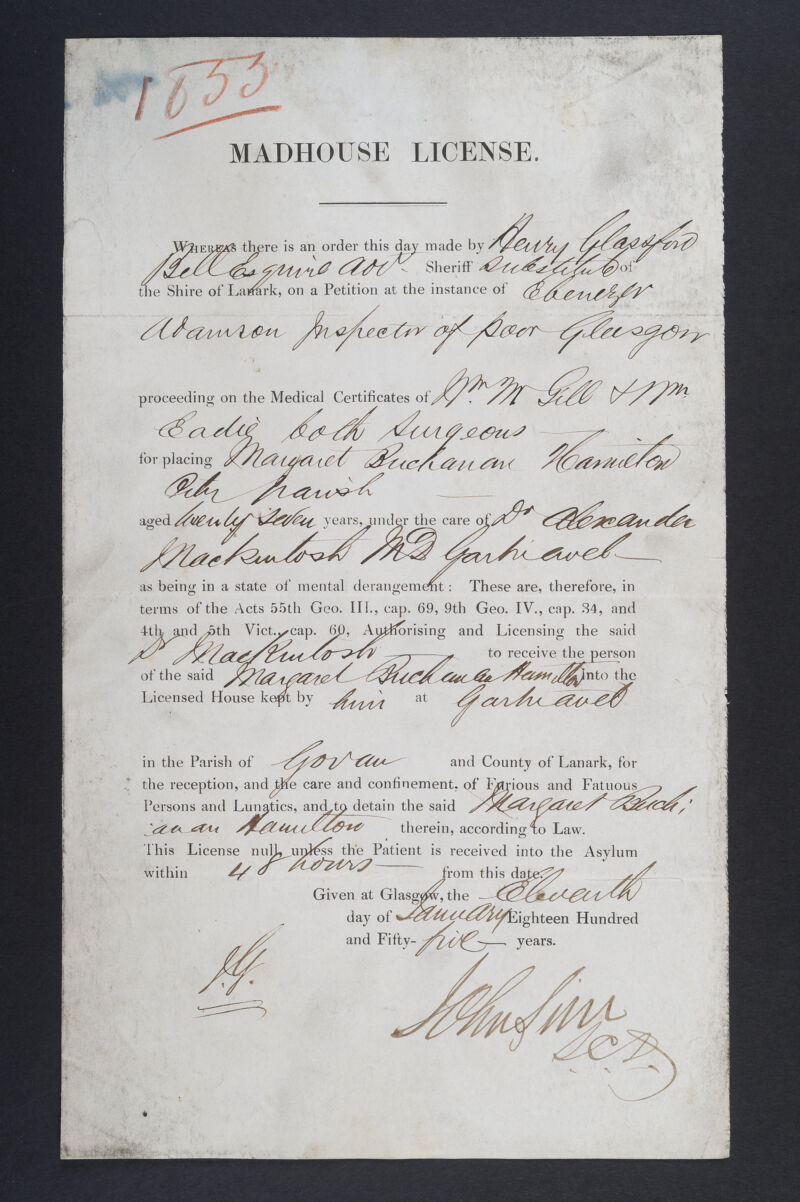 1833
MADHOUSE LICENSE.
WHEREAS there is an order this day made by Henry Glassford
Bell Esquire Adv. Sheriff Substitute of
the Shire of Lanark, on a Petition at the instance of Ebenezer
Adamson Inspector of poor Glasgow
proceeding on the Medical Certificates of Wm. Mc Gill & Wm
Eadie both Surgeons
for placing Margaret Buchanan Hamilton
City parish
aged twenty seven years, under the care of Dr Alexander
Mackintosh MD Gartnavel
as being in a state of mental derangement: These are, therefore, in
terms of the Acts 55th Geo. III., cap. 69, 9th Geo. IV., cap. 34, and
4th and 5th Vict., cap. 60, Authorising and Licensing the said
Dr Mackintosh to receive the person
of the said Margaret Buchanan Hamilton into the
Licensed House kept by him at Gartnavel
in the Parish of Govan and County of Lanark, for
the reception, and the care and confinement, of Furious and Fatuous
Persons and Lunatics, and to detain the said Margaret Buch:
:anan Hamilton therein, according to Law.
This License null, unless the Patient is received into the Asylum
within 48 hours from this date.
Given at Glasgow, the Eleventh
day of January Eighteen Hundred
and Fifty-five years.
J.G.
John Sim